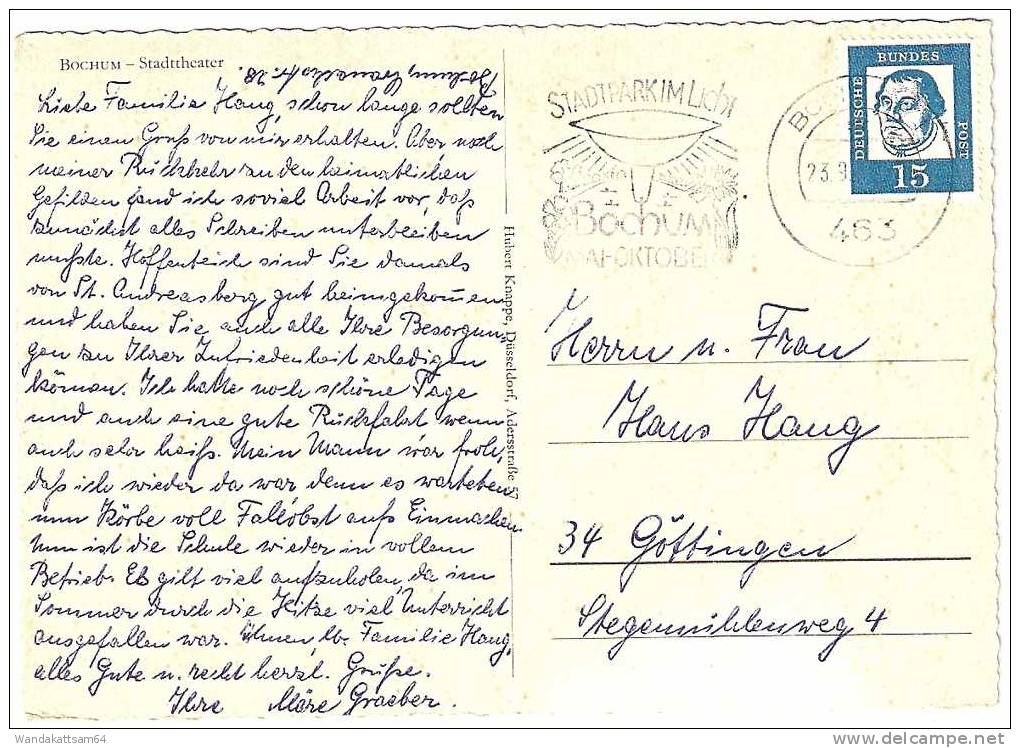 BOCHUM – Stadttheater
Bochum,
Liebe Familie Haug, schon lange sollten
Sie einen Gruß von mir erhalten. Aber nach
meiner Rückkehr zu den heimatlichen
Gefilden fand ich soviel Arbeit vor, daß
zunächst alles Schreiben unterbleiben
mußte. Hoffentlich sind Sie damals
von St. Andreasberg gut heimgekom̄en
und haben Sie auch alle Ihre Besorgun-
gen zu Ihrer Zufriedenheit erledigen
können. Ich hatte noch schöne Tage
und auch eine gute Rückfahrt wenn
auch sehr heiß. Mein Mann war froh,
daß ich wieder da war denn es warteten
nun Körbe voll Fallobst aufs Einmachen.
Nun ist die Schule wieder in vollem
Betrieb. Es gilt viel aufzuholen, da im
Sommer durch die Hitze viel Unterricht
ausgefallen war. Ihnen, lb. Familie Haug,
alles Gute u. recht herzl. Grüße.
Ihre Märe Graeber.
Hubert Knappe, Düsseldorf, Adersstraße 57
STADTPARK IM Licht
BOCHUM
MAI-OKTOBER
BO
23.9
463
DEUTSCHE
BUNDES
POST
15
Herrn u. Frau
Hans Haug
34 Göttingen
Stegemühlenweg 4
Wandakattsam64
delcampe.net